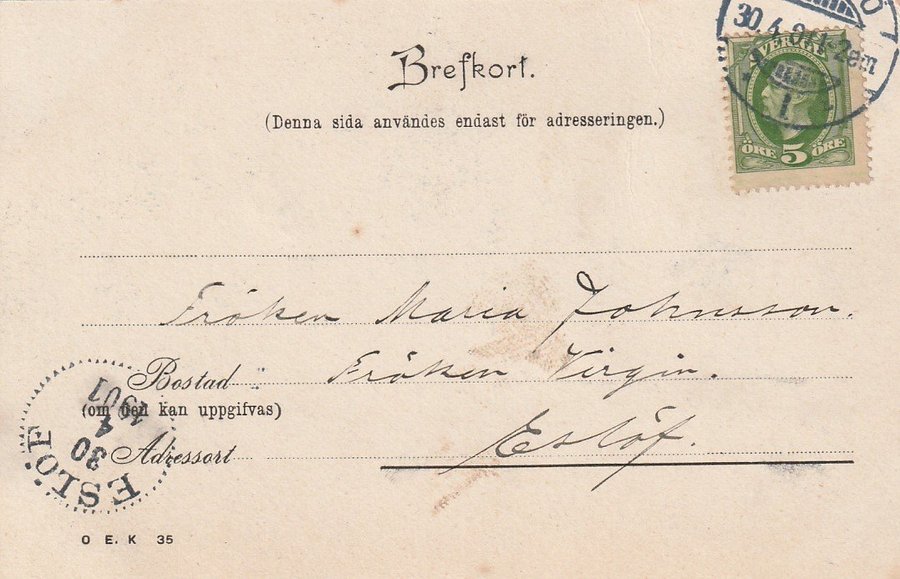 Ö
30.4.01 1-2em
1.
SVERIGE
ÖRE 5 ÖRE
Brefkort.
(Denna sida användes endast för adresseringen.)
Fröken Maria Johnsson.
Bostad Fröken Virgin.
(om den kan uppgifvas)
Adressort Eslöf.
ESLÖF
30
4
1901
O E. K 35